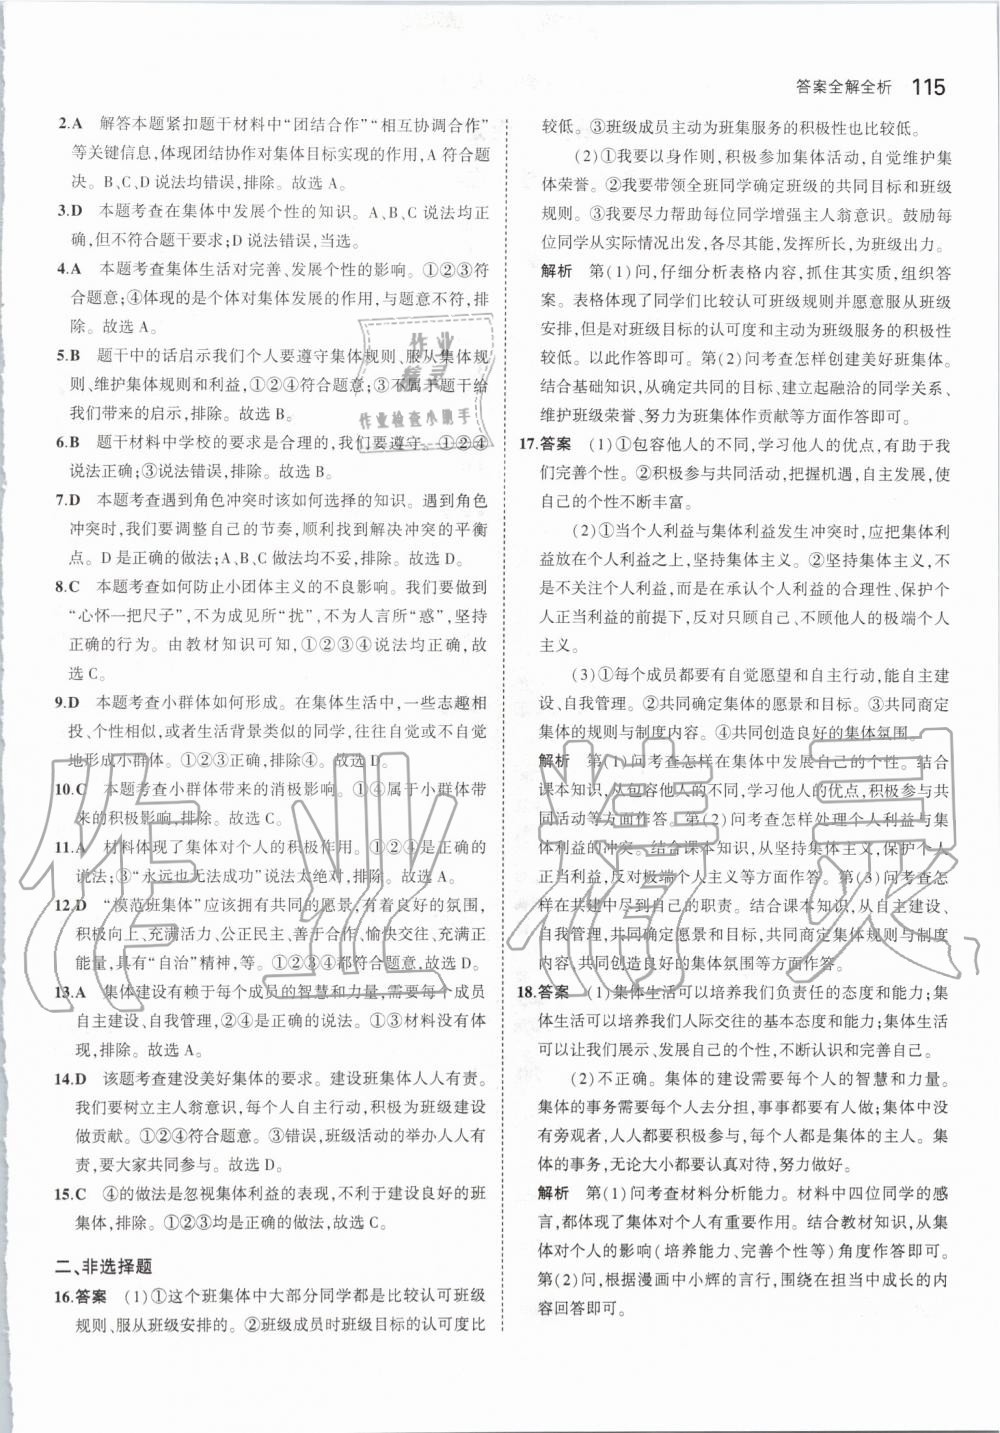 答案全解全析 115
2.A 解答本题紧扣题干材料中“团结合作”“相互协调合作”
等关键信息,体现团结协作对集体目标实现的作用,A 符合题
决。B、C、D 说法均错误,排除。故选 A。
3.D 本题考查在集体中发展个性的知识。A、B、C 说法均正
确,但不符合题干要求;D 说法错误,当选。
4.A 本题考查集体生活对完善、发展个性的影响。①②③符
合题意;④体现的是个体对集体发展的作用,与题意不符,排
除。故选 A。
5.B 题干中的话启示我们个人要遵守集体规则、服从集体规
则、维护集体规则和利益,①②④符合题意;③不属于题干给
我们带来的启示,排除。故选 B。
6.B 题干材料中学校的要求是合理的,我们要遵守。①②④
说法正确;③说法错误,排除。故选 B。
7.D 本题考查遇到角色冲突时该如何选择的知识。遇到角色
冲突时,我们要调整自己的节奏,顺利找到解决冲突的平衡
点。D 是正确的做法;A、B、C 做法均不妥,排除。故选 D。
8.C 本题考查如何防止小团体主义的不良影响。我们要做到
“心怀一把尺子”,不为成见所“扰”,不为人言所“惑”,坚持
正确的行为。由教材知识可知,①②③④说法均正确,故
选 C。
9.D 本题考查小群体如何形成。在集体生活中,一些志趣相
投、个性相似,或者生活背景类似的同学,往往自觉或不自觉
地形成小群体。①②③正确,排除④。故选 D。
10.C 本题考查小群体带来的消极影响。①④属于小群体带
来的积极影响,排除。故选 C。
11.A 材料体现了集体对个人的积极作用。①②④是正确的
说法;③“永远也无法成功”说法太绝对,排除。故选 A。
12.D “模范班集体”应该拥有共同的愿景,有着良好的氛围,
积极向上、充满活力、公正民主、善于合作、愉快交往、充满正
能量,具有“自治”精神,等。①②③④都符合题意。故选 D。
13.A 集体建设有赖于每个成员的智慧和力量,需要每个成员
自主建设、自我管理,②④是正确的说法。①③材料没有体
现,排除。故选 A。
14.D 该题考查建设美好集体的要求。建设班集体人人有责。
我们要树立主人翁意识,每个人自主行动,积极为班级建设
做贡献。①②④符合题意。③错误,班级活动的举办人人有
责,要大家共同参与。故选 D。
15.C ④的做法是忽视集体利益的表现,不利于建设良好的班
集体,排除。①②③均是正确的做法,故选 C。
二、非选择题
16.答案 (1)①这个班集体中大部分同学都是比较认可班级
规则、服从班级安排的。②班级成员对班级目标的认可度比
较低。③班级成员主动为班集服务的积极性也比较低。
(2)①我要以身作则,积极参加集体活动,自觉维护集
体荣誉。②我要带领全班同学确定班级的共同目标和班级
规则。③我要尽力帮助每位同学增强主人翁意识。鼓励每
位同学从实际情况出发,各尽其能,发挥所长,为班级出力。
解析 第(1)问,仔细分析表格内容,抓住其实质,组织答
案。表格体现了同学们比较认可班级规则并愿意服从班级
安排,但是对班级目标的认可度和主动为班级服务的积极性
较低。以此作答即可。第(2)问考查怎样创建美好班集体。
结合基础知识,从确定共同的目标、建立起融洽的同学关系、
维护班级荣誉、努力为班集体作贡献等方面作答即可。
17.答案 (1)①包容他人的不同,学习他人的优点,有助于我
们完善个性。②积极参与共同活动,把握机遇,自主发展,使
自己的个性不断丰富。
(2)①当个人利益与集体利益发生冲突时,应把集体利
益放在个人利益之上,坚持集体主义。②坚持集体主义,不
是不关注个人利益,而是在承认个人利益的合理性、保护个
人正当利益的前提下,反对只顾自己、不顾他人的极端个人
主义。
(3)①每个成员都要有自觉愿望和自主行动,能自主建
设、自我管理。②共同确定集体的愿景和目标。③共同商定
集体的规则与制度内容。④共同创造良好的集体氛围。
解析 第(1)问考查怎样在集体中发展自己的个性。结合
课本知识,从包容他人的不同,学习他人的优点,积极参与共
同活动等方面作答。第(2)问考查怎样处理个人利益与集
体利益的冲突。结合课本知识,从坚持集体主义,保护个人
正当利益,反对极端个人主义等方面作答。第(3)问考查怎
样在共建中尽到自己的职责。结合课本知识,从自主建设、
自我管理,共同确定愿景和目标,共同商定集体规则与制度
内容,共同创造良好的集体氛围等方面作答。
18.答案 (1)集体生活可以培养我们负责任的态度和能力;集
体生活可以培养我们人际交往的基本态度和能力;集体生活
可以让我们展示、发展自己的个性,不断认识和完善自己。
(2)不正确。集体的建设需要每个人的智慧和力量。
集体的事务需要每个人去分担,事事都要有人做;集体中没
有旁观者,人人都要积极参与,每个人都是集体的主人。集
体的事务,无论大小都要认真对待,努力做好。
解析 第(1)问考查材料分析能力。材料中四位同学的感
言,都体现了集体对个人有重要作用。结合教材知识,从集
体对个人的影响(培养能力、完善个性等)角度作答即可。
第(2)问,根据漫画中小辉的言行,围绕在担当中成长的内
容回答即可。
作业
精灵
作业检查小助手
作业精灵